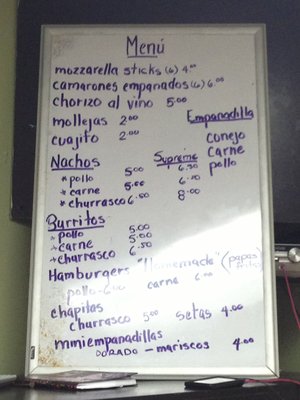 Menú
mozzarella sticks (6) 4.00
camarones empanados (6) 6.00
chorizo al vino 5.00
mollejas 2.00
cuajito 2.00
Empanadilla
conejo
carne
pollo
Nachos Supreme
*pollo 5.00 6.50
*carne 5.00 6.50
*churrasco 6.50 8.00
Burritos
*pollo 5.00
*carne 5.00
*churrasco 6.50
Hamburgers "Homemade" (papas fritas)
pollo - 6.00 carne 6.00
chapitas
churrasco 5.00 setas 4.00
miniempanadillas
DORADO - mariscos 4.00